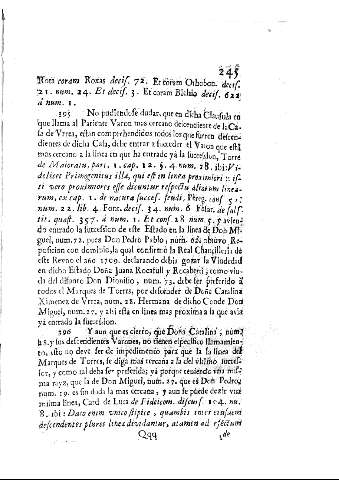 245
Rota coram Roxas decis. 72. Et coram Othobon. decis.
21. num. 24. Et decis. 3. Et coram Bichio decis. 622
á num. 1.
395 No pudiendose dudar, que en dicha Clausula en
que llama al Pariente Varon mas cercano descendiente de la Ca-
sa de Vrrea, estan comprehendidos todos los que fueren descen-
dientes de dicha Casa, debe entrar á succeder el Varon que esté
mas cercano a la linea en que ha entrado yá la succession, Torre
de Maioratu, part. 1. cap. 12. §. 4. num. 28. ibi: Vi-
delicet Primogenitus illa, qui est in linea proximiori: is-
ti vero proximiores esse dicuntur respectu aliarum linea-
rum, ex cap. 1. de natura succes. feudi, Phreg. cons.
num. 22. lib. 4. Font. decis. 34. num. 6 de subs-
tit. quæst. 357. á num. 1. Et cons. 28 num. 5. y avien-
do entrado la succession de este Estado en la linea de Don Mi-
guel, num. 72. pues Don Pedro Pablo, num. obtuvo Re-
posicion con dominio, la qual confirmó la Real Chancilleria de
este Reyno el año 1709. declarando debia gozar la Viudedad
en dicho Estado Doña Juana Rocafull y Rocaberti, como viu-
da del difunto Don Dionisio, num. 73. debe ser preferido á
todos el Marques de Torres, por descender de Doña Catalina
Ximenez de Vrrea, num. 28. Hermana de dicho Conde Don
Miguel, num. 27. y assi está en linea mas proxima a la que avia
yá entrado la succession.
396 Y aun que es cierto, que Doña Catalina, num.
28. y sus descendientes Varones, no tienen especifico llamamien-
to, esto no debe ser de impedimento para que la linea del
Marques de Torres, se diga mas cercana á la del vltimo succes-
sor, y como tal deba ser preferida; yá porque teniendo vna mis-
ma rayz, que la de Don Miguel, num. 27. que es Don Pedro,
num. 19. es sin duda la mas cercana, y aun se puede dezir vna
misma linea, Card. de Luca de Fideicom. discurs. 104. nu.
8. ibi: Dato enim vnico stipite, quamvis inter eiusdem
descendentes plures linea dividantur, attamen ad effectum
Qqq de